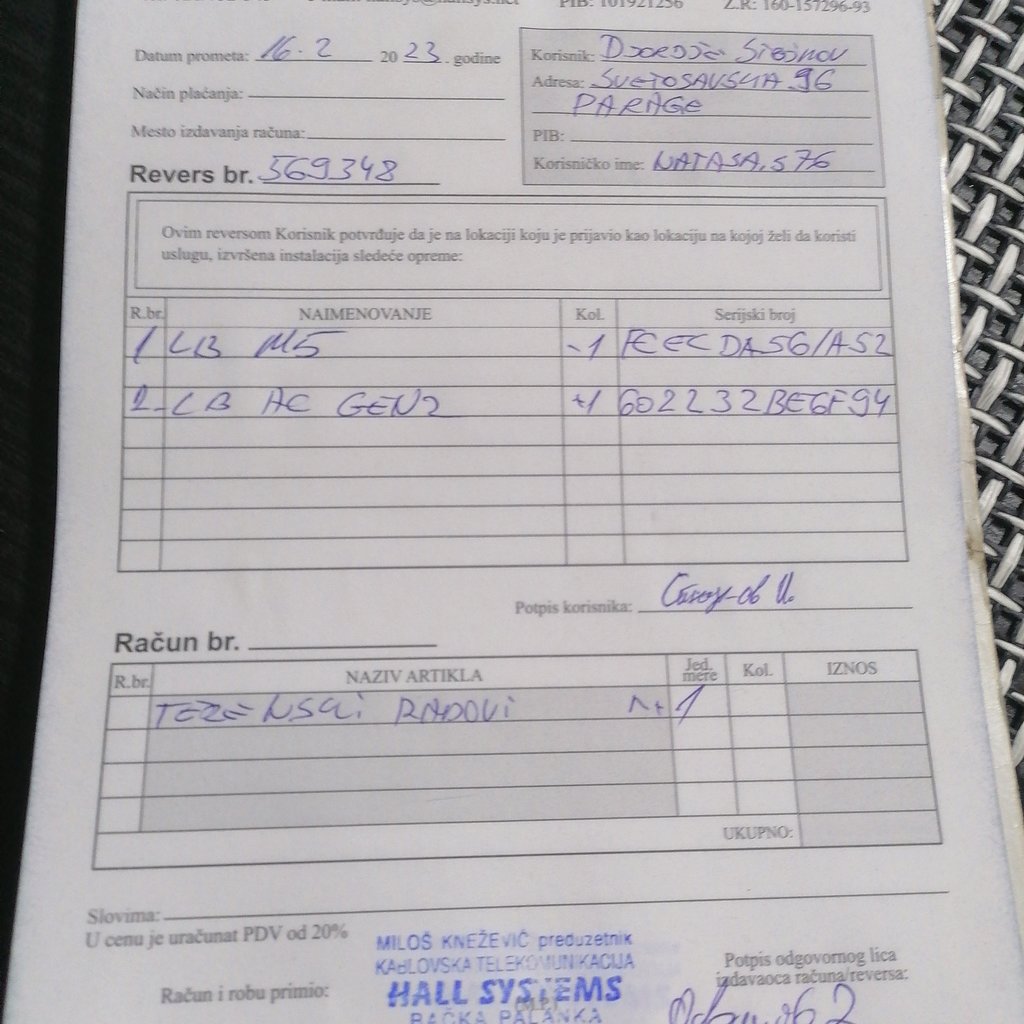 PIB: 101921256 Z.R: 160-157296-93
Datum prometa: 16.2 2023. godine
Način plaćanja:
Mesto izdavanja računa:
Revers br. 569348
Korisnik: DJORDJE SIBINOV
Adresa: SVETOSAVSKA 96
PARAGE
PIB:
Korisničko ime: NATASA.576
Ovim reversom Korisnik potvrđuje da je na lokaciji koju je prijavio kao lokaciju na kojoj želi da koristi
uslugu, izvršena instalacija sledeće opreme:
R.br. NAIMENOVANJE Kol. Serijski broj
1 LB M5 -1 FCECDA561A52
2 LB AC GEN2 +1 602232BE6F94
Potpis korisnika:
Račun br.
R.br. NAZIV ARTIKLA Jed. mere Kol. IZNOS
TERENSKI RADOVI 1
UKUPNO:
Slovima:
U cenu je uračunat PDV od 20%
Račun i robu primio:
MILOŠ KNEŽEVIĆ preduzetnik
KABLOVSKA TELEKOMUNIKACIJA
HALL SYSTEMS
(M.P.)
BAČKA PALANKA
Potpis odgovornog lica
izdavaoca računa/reversa: